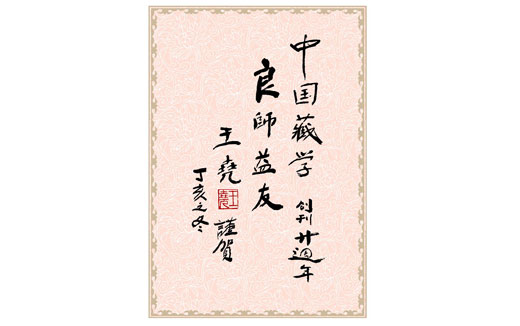 中国藏学 创刊廿週年
良師益友
王堯 謹賀
王堯
丁亥之冬